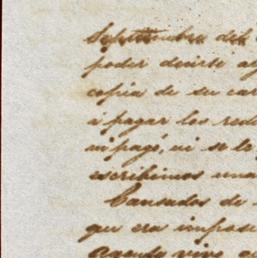 Septiembre del
poder decirte
copia de su car
á pagar los red
ni pagó, ni se le
escribimos una
Cansados de
que era imposi
Agenda vive